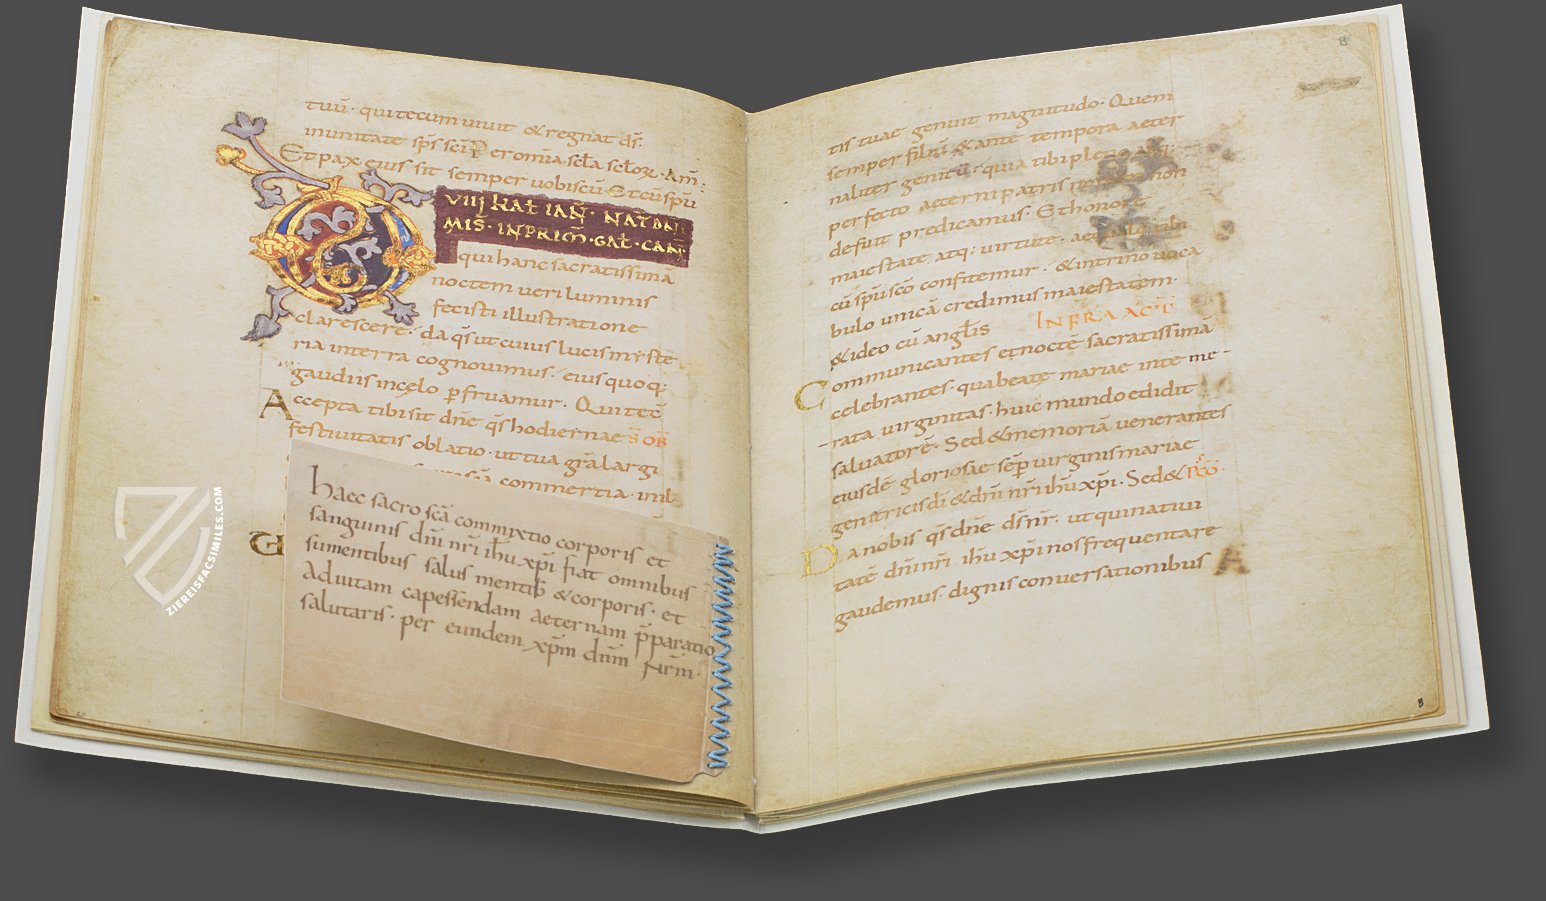 tuū· qui tecum uiuit & regnat dſ̄·
in unitate sp̄s sc̄i Per omīa sc̄la sc̄lor̄· Am̄:
Et pax eius sit semper uobiscū· Et cū sp̄u
VIIIJ KAL̄ IAN̄· NAT̄ DN̄I
MIS̄· IN PRIM̄· GAL̄· CAN̄·
qui hanc sacratissimā
noctem ueri luminis
fecisti illustratione
clarescere· da qs̄ ut cuius lucis myste
ria in terra cognouimus· eius quoq;
gaudiis in cęlo p fruamur· Qui tec̄
Accepta tibi sit dn̄e qs̄ hodiernae S̄ OB̄
festiuitatis oblatio· ut tua gr̄a largi
commertia· in il
Haec sacro sc̄ā commixtio corporis et
sanguinis dn̄i nr̄i ih̄u xp̄i fiat omnibus
sumentibus salus mentis & corporis· et
Ad uitam capessendam aeternam p̄paratio
salutaris· per eundem xp̄m dn̄m Nr̄m·
ZIEREISFACSIMILES.COM
tis tuae genuit magnitudo· Quem
semper filiū & ante tempora aeter
naliter genitū· quia tibi pleno atq;
perfecto aeterni patris non
defuit predicamus· Et honore
maiestate atq; uirtute·
cū sp̄u sc̄o confitemur· & in trino uoca
bulo unicā credimus maiestatem·
& ideo cū angl̄is INFRA ACT̄
Communicantes et noctē sacratissimā
celebrantes· qua beatę mariae inte me-
-rata uirginitas· huic mundo edidit
saluatorē· Sed & memoriā uenerantes
eiusdē gloriosae sēp uirginis mariae
genitricis dī & dn̄i nr̄i ih̄u xp̄i· Sed & P̄ CŌ·
Da nobis qs̄ dn̄e dſ̄ nr̄· ut qui natiui
tatē dn̄i nr̄i ih̄u xp̄i nos frequentare
gaudemus· dignis conuersationibus
A
8